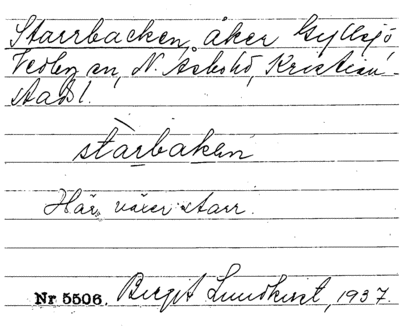 Starrbacken, åker Gyllsjö,
Vedby sn, N. Åsbohd, Kristian-
stads l.
stàrbaken
Här växer starr.
Nr 5506. Birgit Lundkvist, 1937.